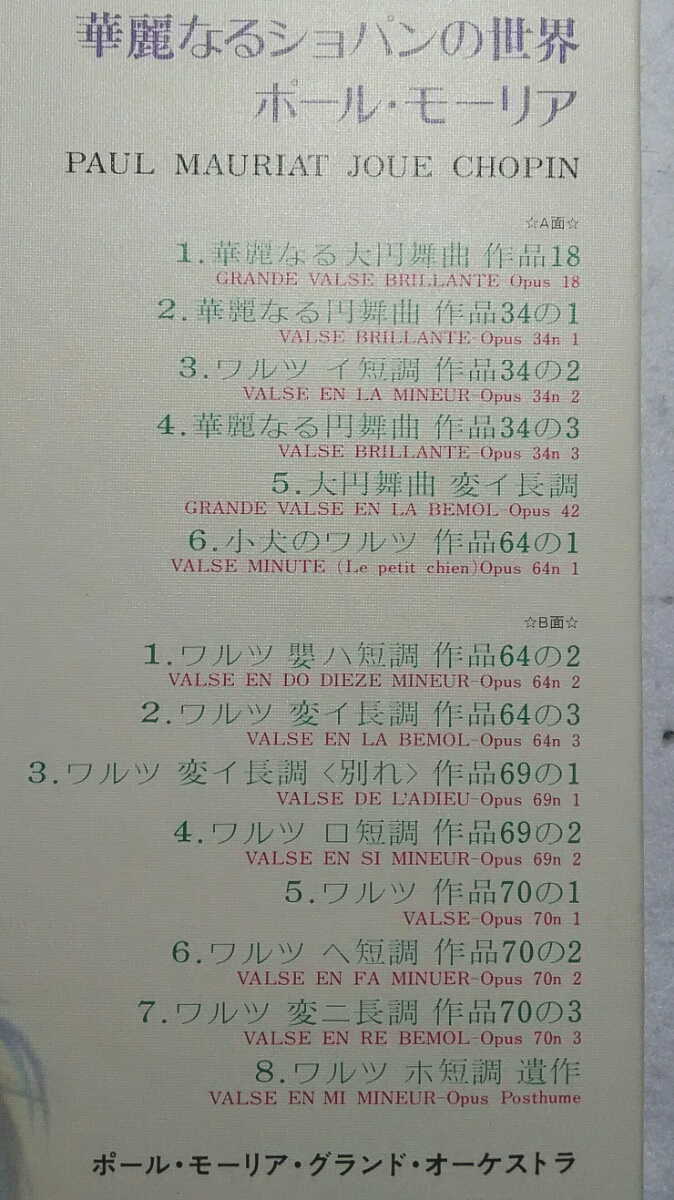 華麗なるショパンの世界
ポール・モーリア
PAUL MAURIAT JOUE CHOPIN
☆A面☆
1.華麗なる大円舞曲 作品18
GRANDE VALSE BRILLANTE Opus 18
2.華麗なる円舞曲 作品34の1
VALSE BRILLANTE-Opus 34n 1
3.ワルツ イ短調 作品34の2
VALSE EN LA MINEUR-Opus 34n 2
4.華麗なる円舞曲 作品34の3
VALSE BRILLANTE-Opus 34n 3
5.大円舞曲 変イ長調
GRANDE VALSE EN LA BEMOL-Opus 42
6.小犬のワルツ 作品64の1
VALSE MINUTE (Le petit chien)Opus 64n 1
☆B面☆
1.ワルツ 嬰ハ短調 作品64の2
VALSE EN DO DIEZE MINEUR-Opus 64n 2
2.ワルツ 変イ長調 作品64の3
VALSE EN LA BEMOL-Opus 64n 3
3.ワルツ 変イ長調〈別れ〉作品69の1
VALSE DE L'ADIEU-Opus 69n 1
4.ワルツ ロ短調 作品69の2
VALSE EN SI MINEUR-Opus 69n 2
5.ワルツ 作品70の1
VALSE-Opus 70n 1
6.ワルツ ヘ短調 作品70の2
VALSE EN FA MINUER-Opus 70n 2
7.ワルツ 変ニ長調 作品70の3
VALSE EN RE BEMOL-Opus 70n 3
8.ワルツ ホ短調 遺作
VALSE EN MI MINEUR-Opus Posthume
ポール・モーリア・グランド・オーケストラ